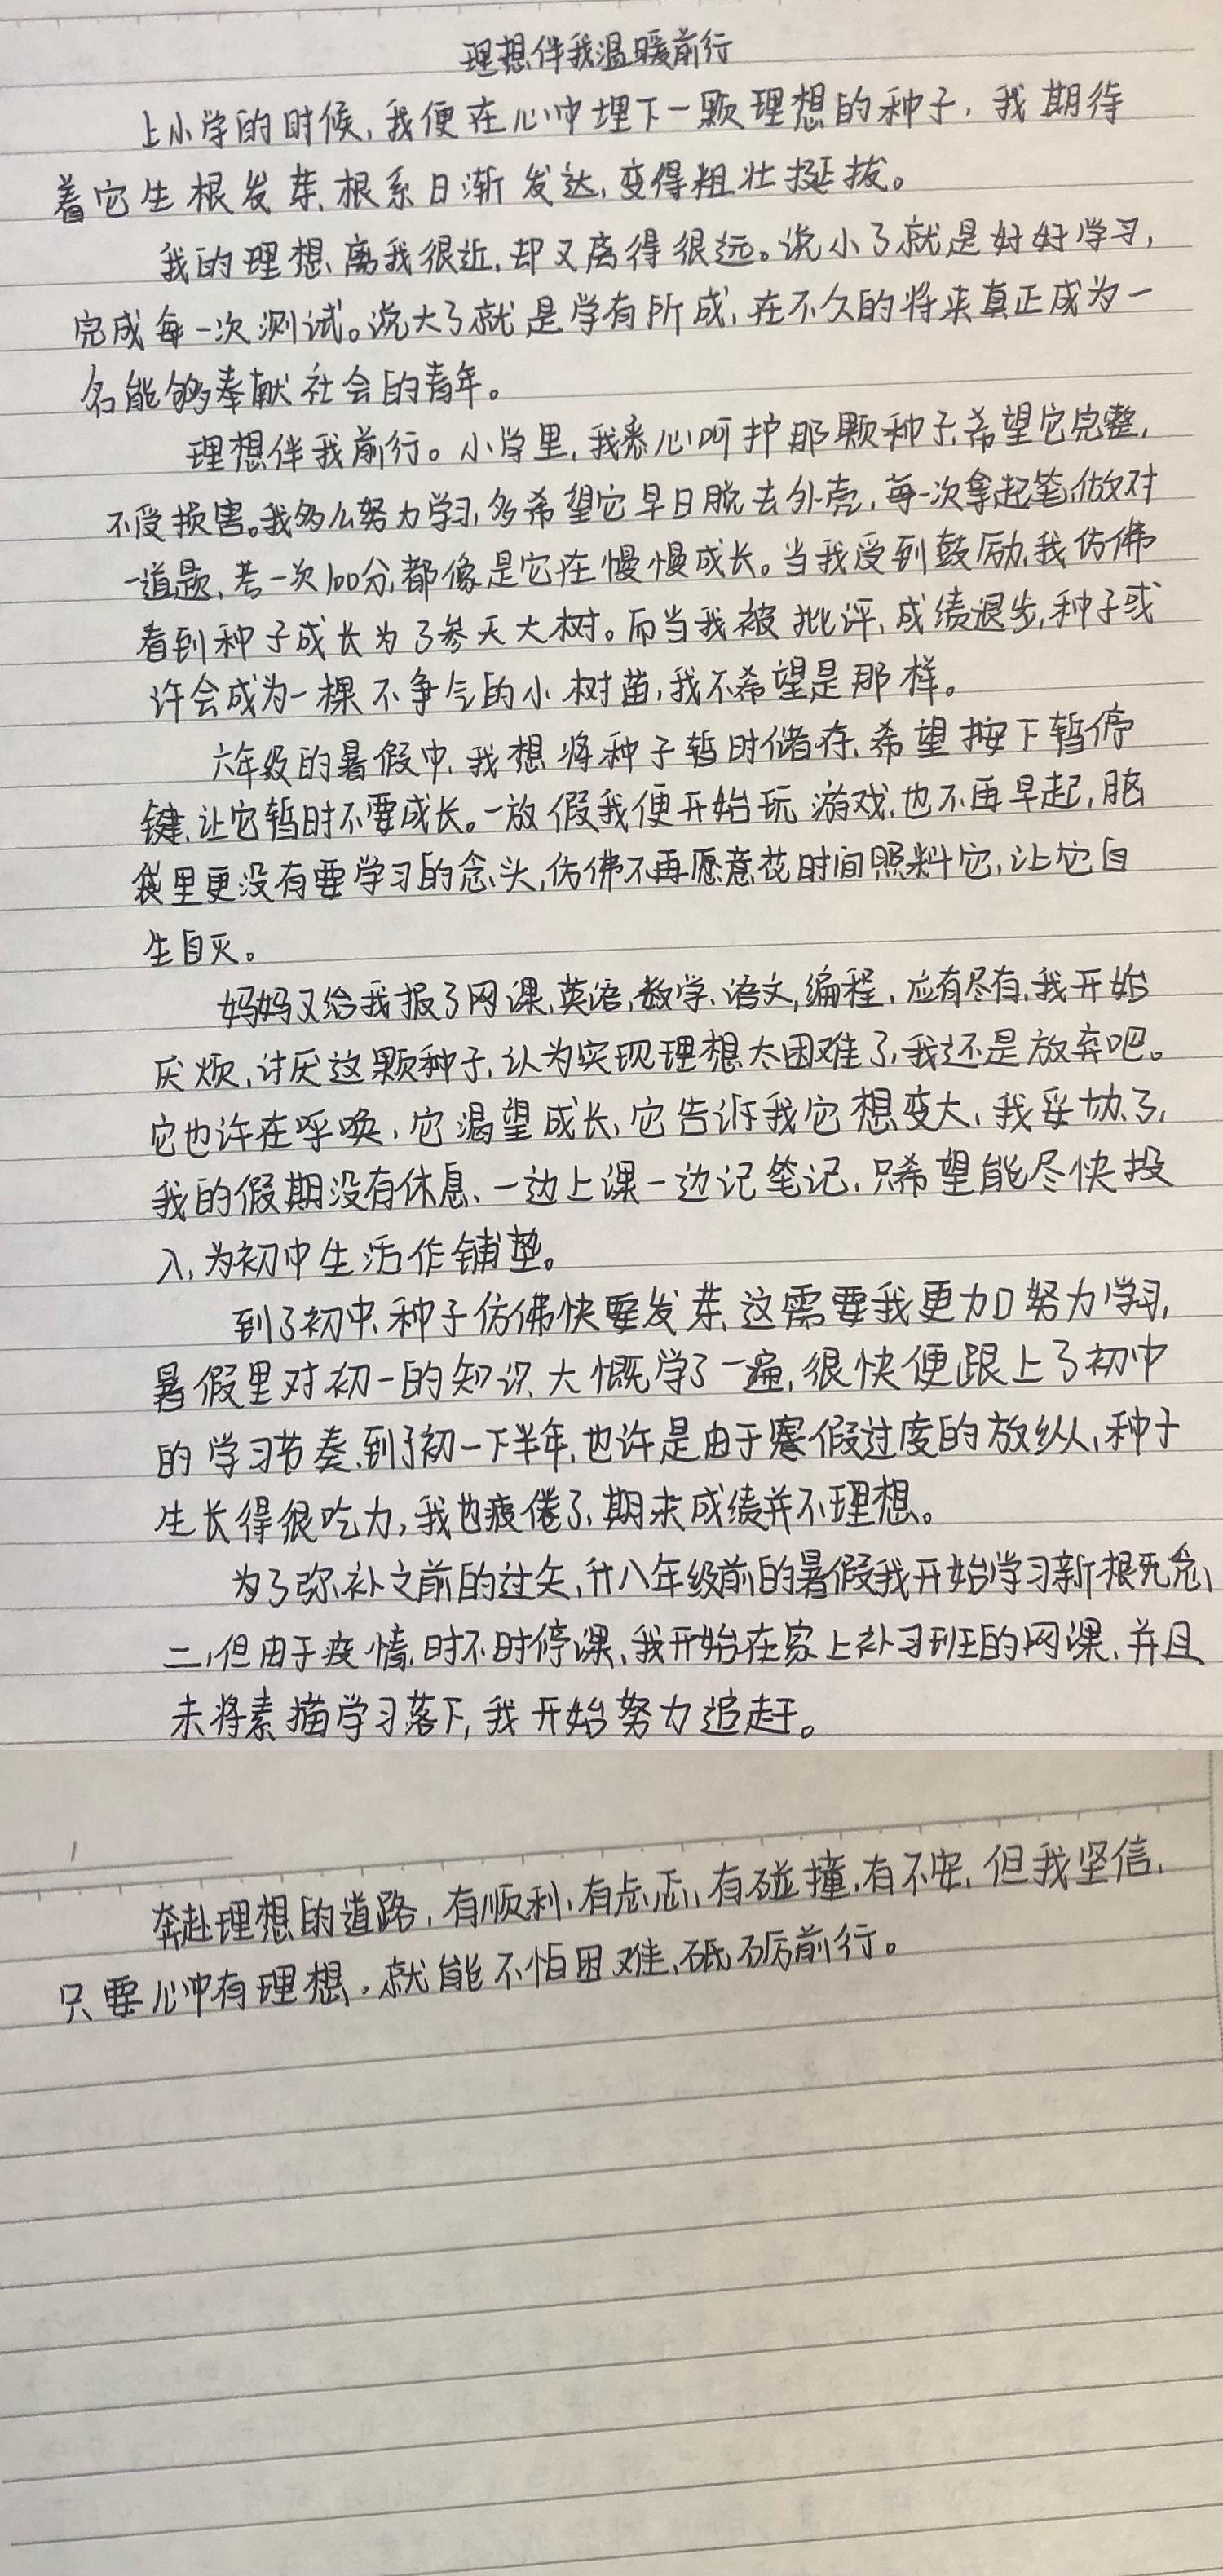 理想伴我温暖前行
上小学的时候,我便在心中埋下一颗理想的种子,我期待
着它生根发芽,根系日渐发达,变得粗壮挺拔。
我的理想,离我很近,却又离得很远。说小了就是好好学习,
完成每一次测试。说大了就是学有所成,在不久的将来真正成为一
名能够奉献社会的青年。
理想伴我前行。小学里,我悉心呵护那颗种子,希望它完整,
不受损害。我多么努力学习,多希望它早日脱去外壳,每一次拿起笔,做对
一道题,考一次100分,都像是它在慢慢成长。当我受到鼓励,我仿佛
看到种子成长为了参天大树。而当我被批评,成绩退步,种子或
许会成为一棵不争气的小树苗,我不希望是那样。
六年级的暑假中,我想将种子暂时储存,希望按下暂停
键,让它暂时不要成长。一放假我便开始玩游戏,也不再早起,脑
袋里更没有要学习的念头,仿佛不再愿意花时间照料它,让它自
生自灭。
妈妈又给我报了网课,英语,数学,语文,编程,应有尽有,我开始
厌烦,讨厌这颗种子,认为实现理想太困难了,我还是放弃吧。
它也许在呼唤,它渴望成长,它告诉我它想变大,我妥协了,
我的假期没有休息,一边上课一边记笔记,只希望能尽快投
入,为初中生活作铺垫。
到了初中,种子仿佛快要发芽,这需要我更加努力学习,
暑假里对初一的知识大概学了一遍,很快便跟上了初中
的学习节奏,到了初一下半年,也许是由于寒假过度的放纵,种子
生长得很吃力,我也疲倦了,期末成绩并不理想。
为了弥补之前的过失,升八年级前的暑假我开始学习新概念
二,但由于疫情,时不时停课,我开始在家上补习班的网课,并且
未将素描学习落下,我开始努力追赶。
奔赴理想的道路,有顺利,有忐忑,有碰撞,有不安,但我坚信,
只要心中有理想,就能不怕困难,砥砺前行。